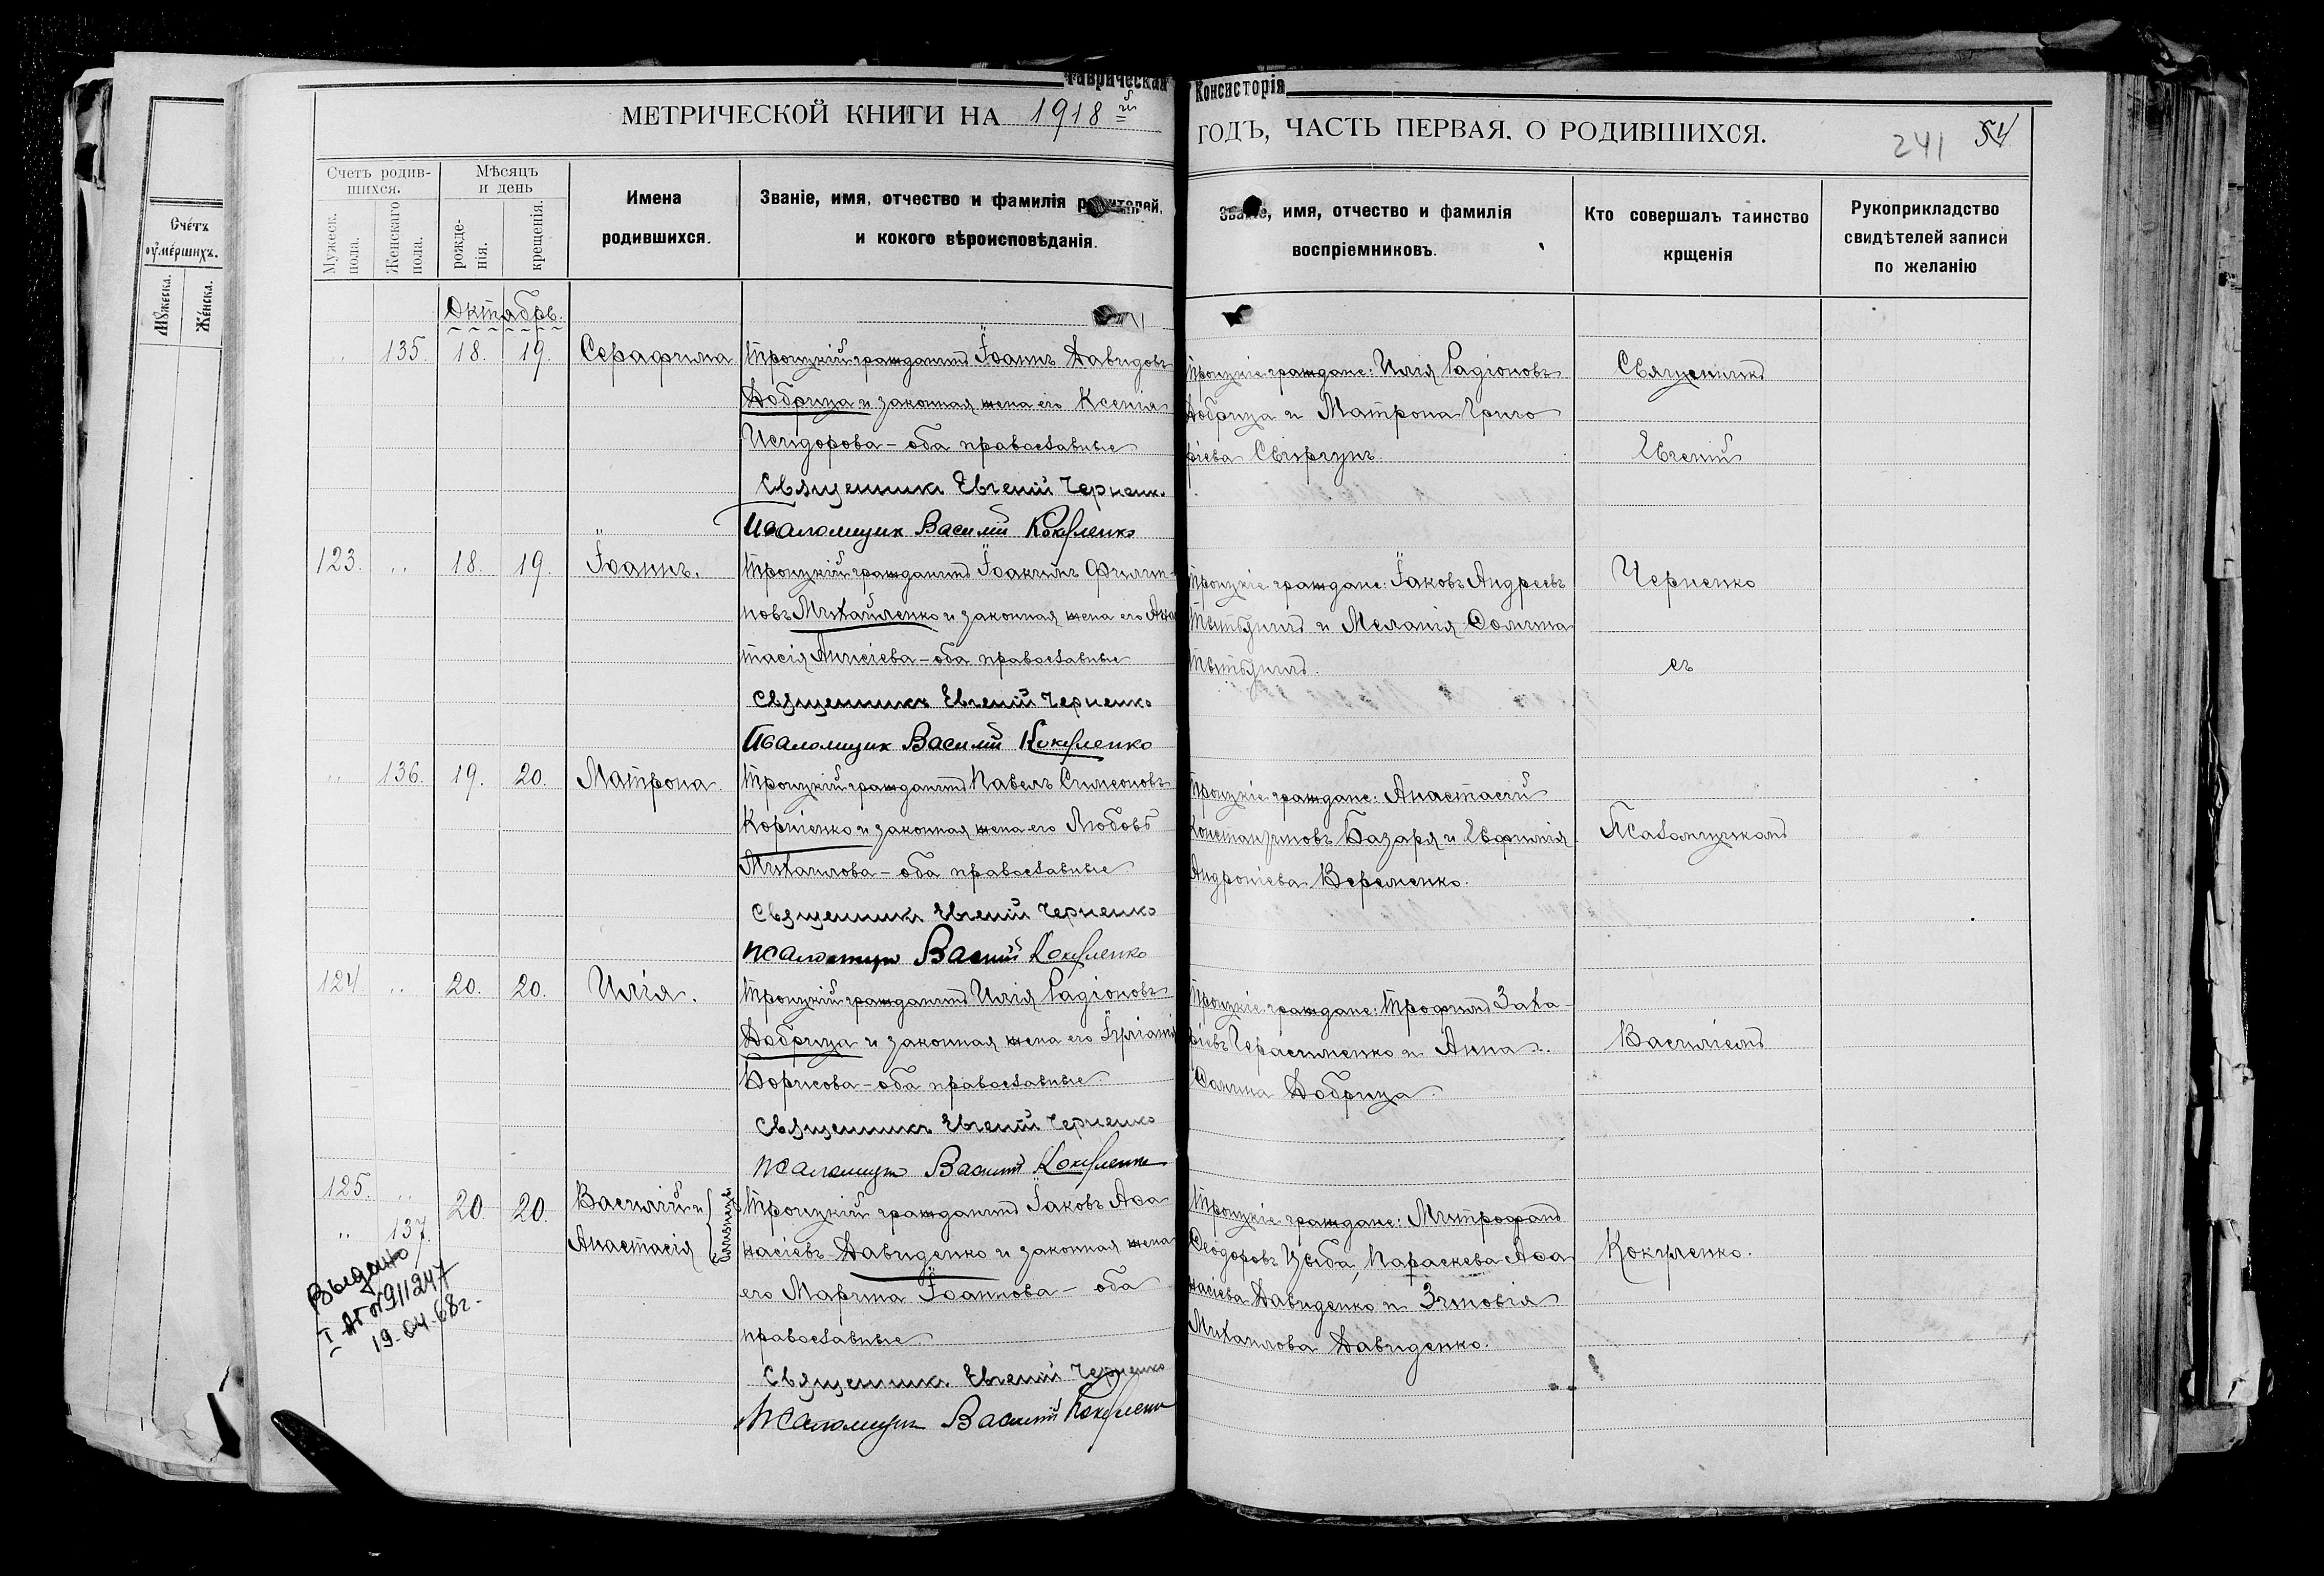 Таврическая Консисторія
МЕТРИЧЕСКОЙ КНИГИ НА 1918 й
ГОДЪ, ЧАСТЬ ПЕРВАЯ. О РОДИВШИХСЯ.
241 54
Счетъ
оумершихъ.
Мужеска.
Женска.
Счетъ родив-
шихся.
Мужеск.
пола.
Женскаго
пола.
Мѣсяцъ
и день
рожде-
нія.
крещенія.
Имена
родившихся.
Званіе, имя, отчество и фамилія родителей,
и кокого вѣроисповѣданія.
Званіе, имя, отчество и фамилія
воспріемниковъ.
Кто совершалъ таинство
крщенія
Рукоприкладство
свидѣтелей записи
по желанію
Октябрь.
" 135. 18. 19. Серафима
Троицкій гражданинъ Іоаннъ Давидовъ
Добрица и законная жена его Ксенія
Исидорова - оба православные
Священникъ Евгеній Черненко
Псаломщик Василій Кокуленко
Троицкіе граждане: Илія Радіоновъ
Добрица и Матрона Григо
ріева Свиргунъ
Священникъ
Евгеній
123. " 18. 19. Іоаннъ.
Троицкій гражданинъ Іоакимъ Филип-
повъ Михайленко и законная жена его Анас
тасія - оба православные
Священникъ Евгеній Черненко
Псаломщик Василій Кокуленко
Троицкіе граждане: Іаковъ Андреевъ
и Меланія Фомина
Черненко
съ
" 136. 19. 20. Матрона.
Троицкій гражданинъ Павелъ Симеоновъ
Корніенко и законная жена его Любовь
Михаилова - оба православные
Священникъ Евгеній Черненко
Псаломщик Василій Кокуленко
Троицкіе граждане: Анастасій
Константиновъ Базаря и Евфимія
Андроніева Веременко.
Псаломщикомъ
124. " 20. 20. Илія.
Троицкій гражданинъ Илія Радіоновъ
Добрица и законная жена его
Борисова - оба православные
Священникъ Евгеній Черненко
Псаломщик Василій Кокуленко
Троицкіе граждане: Трофимъ Заха-
ріевъ Герасименко и Анна
Фомина Добрица.
Василіемъ
125. " 20. 20. Василій и
" 137. Анастасія близнецы
Троицкій гражданинъ Іаковъ Афа
насіевъ Давиденко и законная жена
его Марина Іоаннова - оба
православные
Священникъ Евгеній Черненко
Псаломщик Василій Кокуленко
Троицкіе граждане: Митрофанъ
Феодоровъ Цыба, Параскева Афа
насіева Давиденко и Зиновія
Михаилова Давиденко.
Кокуленко.
Выдано
I-АГ №911247
19-04-68г.